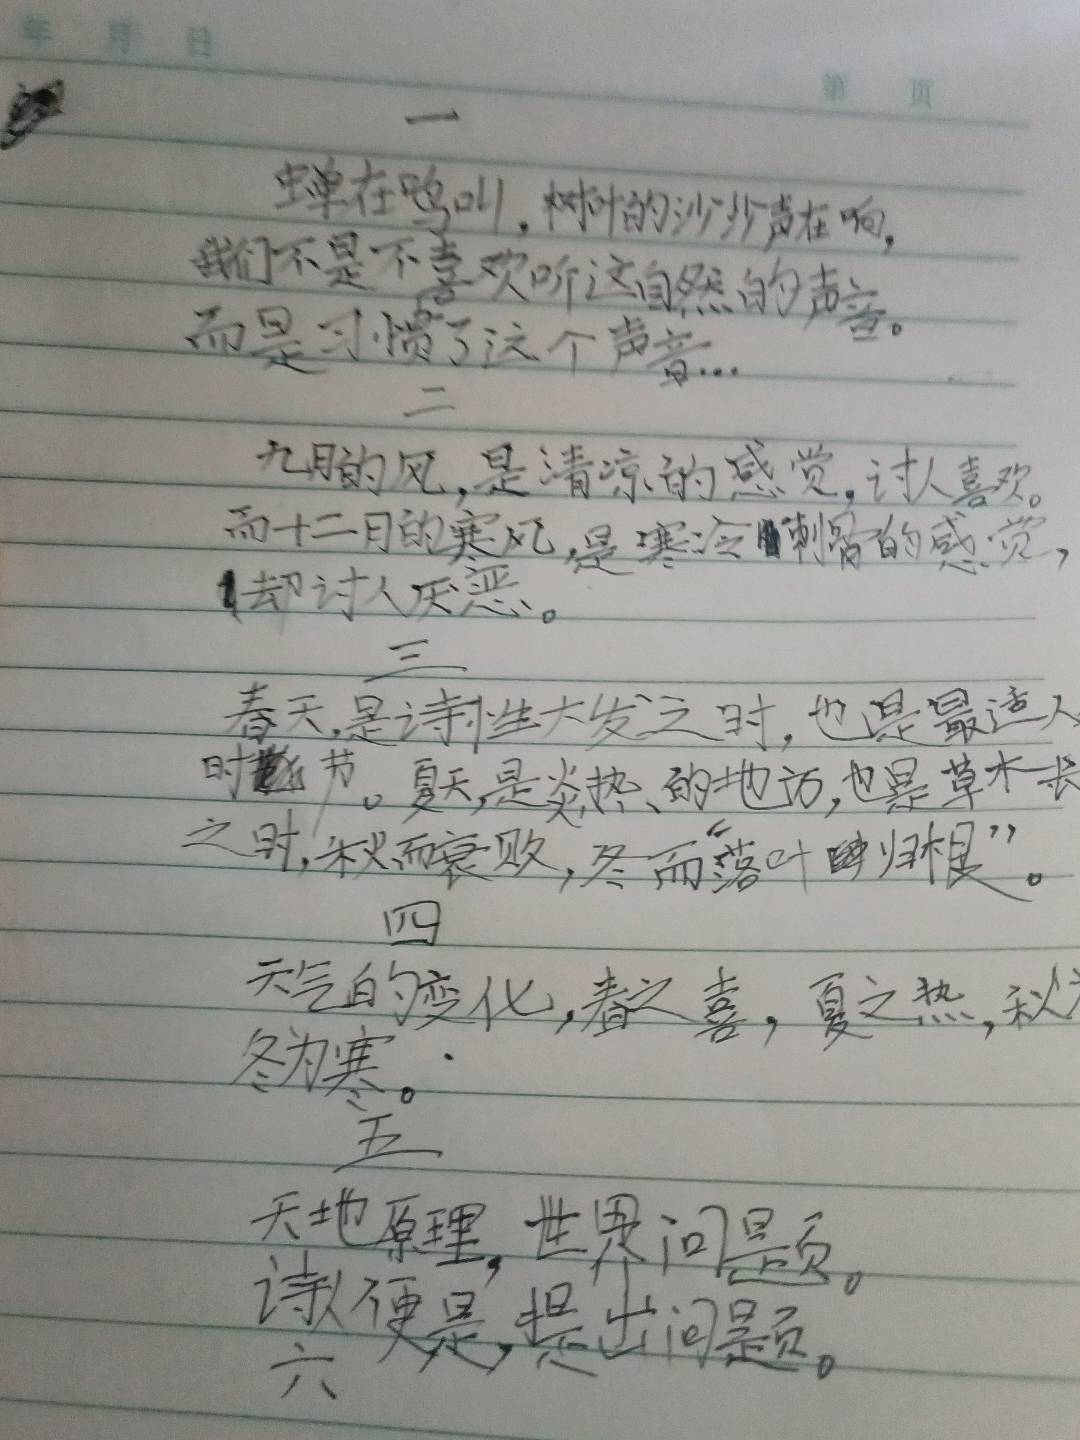 年 月 日
第 页
一
蝉在鸣叫，树叶的沙沙声在响，
我们不是不喜欢听这自然的声音。
而是习惯了这个声音...
二
九月的风，是清凉的感觉，讨人喜欢。
而十二月的寒风，是寒冷刺骨的感觉，
却讨人厌恶。
三
春天，是诗性大发之时，也是最适人
时节。夏天，是炎热的地方，也是草木长
之时，秋而衰败，冬而“落叶归根”。
四
天气的变化，春之喜，夏之热，秋
冬为寒。
五
天地原理，世界问题。
诗人便是，提出问题。
六